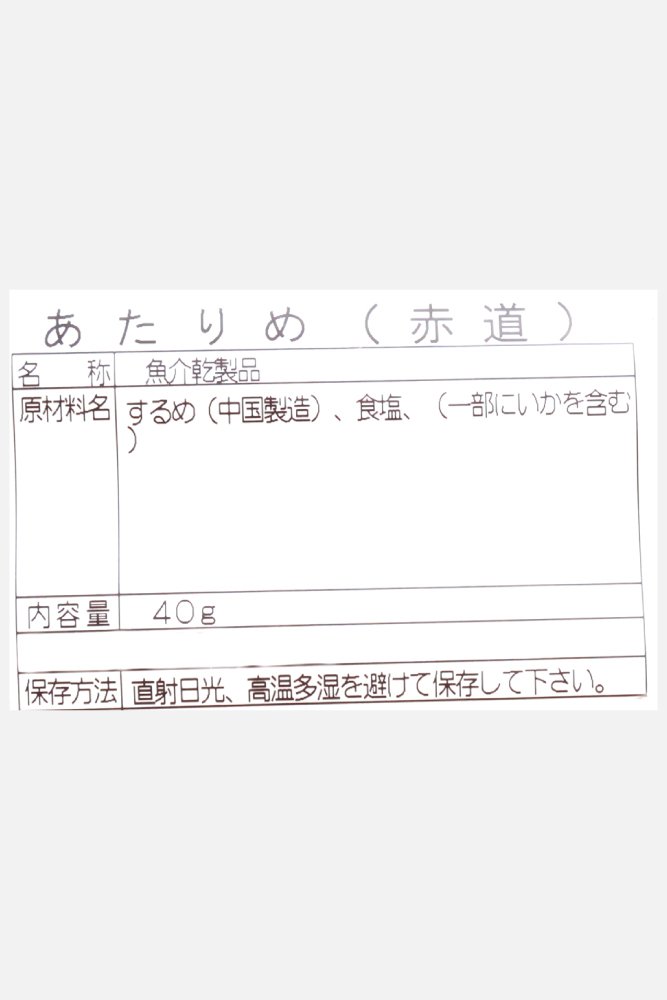 あたりめ（赤道）
名　称　魚介乾製品
原材料名　するめ（中国製造）、食塩、（一部にいかを含む
）
内容量　４０ｇ
保存方法　直射日光、高温多湿を避けて保存して下さい。